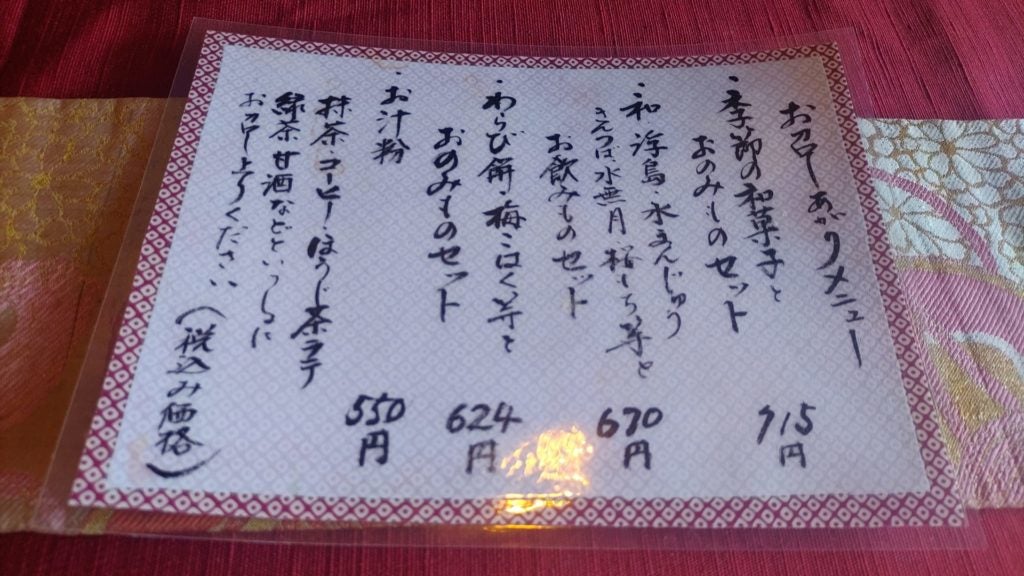 お召しあがりメニュー
・季節の和菓子と
おのみものセット
715円
・和 浮島・水まんじゅう
きんつば水無月 桜もち等と
お飲みものセット
670円
・わらび餅・梅こはく等と
おのみものセット
624円
・お汁粉
550円
抹茶・コーヒー・ほうじ茶ラテ
緑茶甘酒などといっしょに
お召し上りください
(税込み価格)